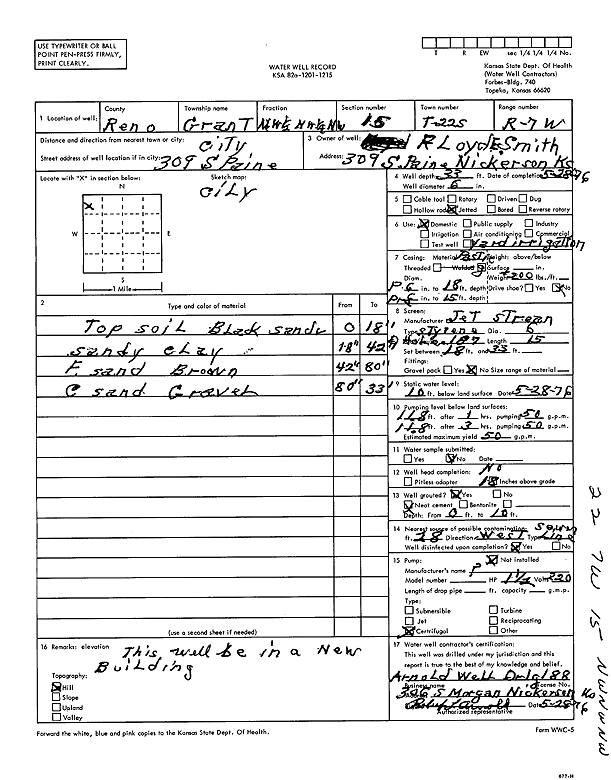 USE TYPEWRITER OR BALL
POINT PEN-PRESS FIRMLY,
PRINT CLEARLY.
WATER WELL RECORD
KSA 82a-1201-1215
T R EW sec 1/4 1/4 1/4 No.
Kansas State Dept. Of Health
(Water Well Contractors)
Forbes-Bldg. 740
Topeka, Kansas 66620
1 Location of well: County Reno Township name Grant Fraction Section number 15 Town number T-22S Range number R-7W
Distance and direction from nearest town or city: City
Street address of well location if in city: 309 S Paine
3 Owner of well: R Loyd E. Smith
Address: 309 S Paine Nickerson Ks
Locate with "X" in section below:
N
X
W E
S
1 Mile
Sketch map:
City
4 Well depth 33 ft. Date of completion 5-28-76
Well diameter 6 in.
5 Cable tool Rotary Driven Dug
Hollow rod X Jetted Bored Reverse rotary
6 Use: X Domestic Public supply Industry
Irrigation Air conditioning Commercial
Test well X Yard irrigation
7 Casing: Material Height: above/below
Threaded Welded Surface in.
Diam. Weight 200 lbs./ft.
P 6 in. to 18 ft. depth Drive shoe? Yes X No
6 in. to 15 ft. depth
8 Screen:
Manufacturer Jet Stream
Type Styrene Dia. 6
Length 15
Set between 18 ft. and 33 ft.
Fittings:
Gravel pack Yes X No Size range of material
9 Static water level:
10 ft. below land surface Date 5-28-76
10 Pumping level below land surfaces:
11.8 ft. after 1 hrs. pumping 50 g.p.m.
11.8 ft. after 3 hrs. pumping 50 g.p.m.
Estimated maximum yield 50 g.p.m.
11 Water sample submitted:
Yes X No Date
12 Well head completion: No
Pitless adapter 18 Inches above grade
13 Well grouted? X Yes No
X Neat cement Bentonite
Depth: From 0 ft. to 10 ft.
14 Nearest source of possible contamination: Sewer
ft. 28 Direction West Type Line
Well disinfected upon completion? X Yes No
15 Pump: X Not installed
Manufacturer's name P
Model number HP 1 1/2 Volts 220
Length of drop pipe ft. capacity g.m.p.
Type:
Submersible Turbine
Jet Reciprocating
X Centrifugal Other
2 Type and color of material From To
Top soil Black sandy 0 18"
sandy clay 18" 42"
F. sand Brown 42" 80"
C sand Gravel 80" 33
(use a second sheet if needed)
16 Remarks: elevation
This will be in a New
Building
Topography:
X Hill
Slope
Upland
Valley
17 Water well contractor's certification:
This well was drilled under my jurisdiction and this
report is true to the best of my knowledge and belief.
Arnold Well Drlg 188
Business name License No.
326 S Morgan Nickerson Ks
Date 5-28-76
Authorized representative
Forward the white, blue and pinks copies to the Kansas State Dept. Of Health.
Form WWC-5
22 7W 15 NWNWNW
677-H